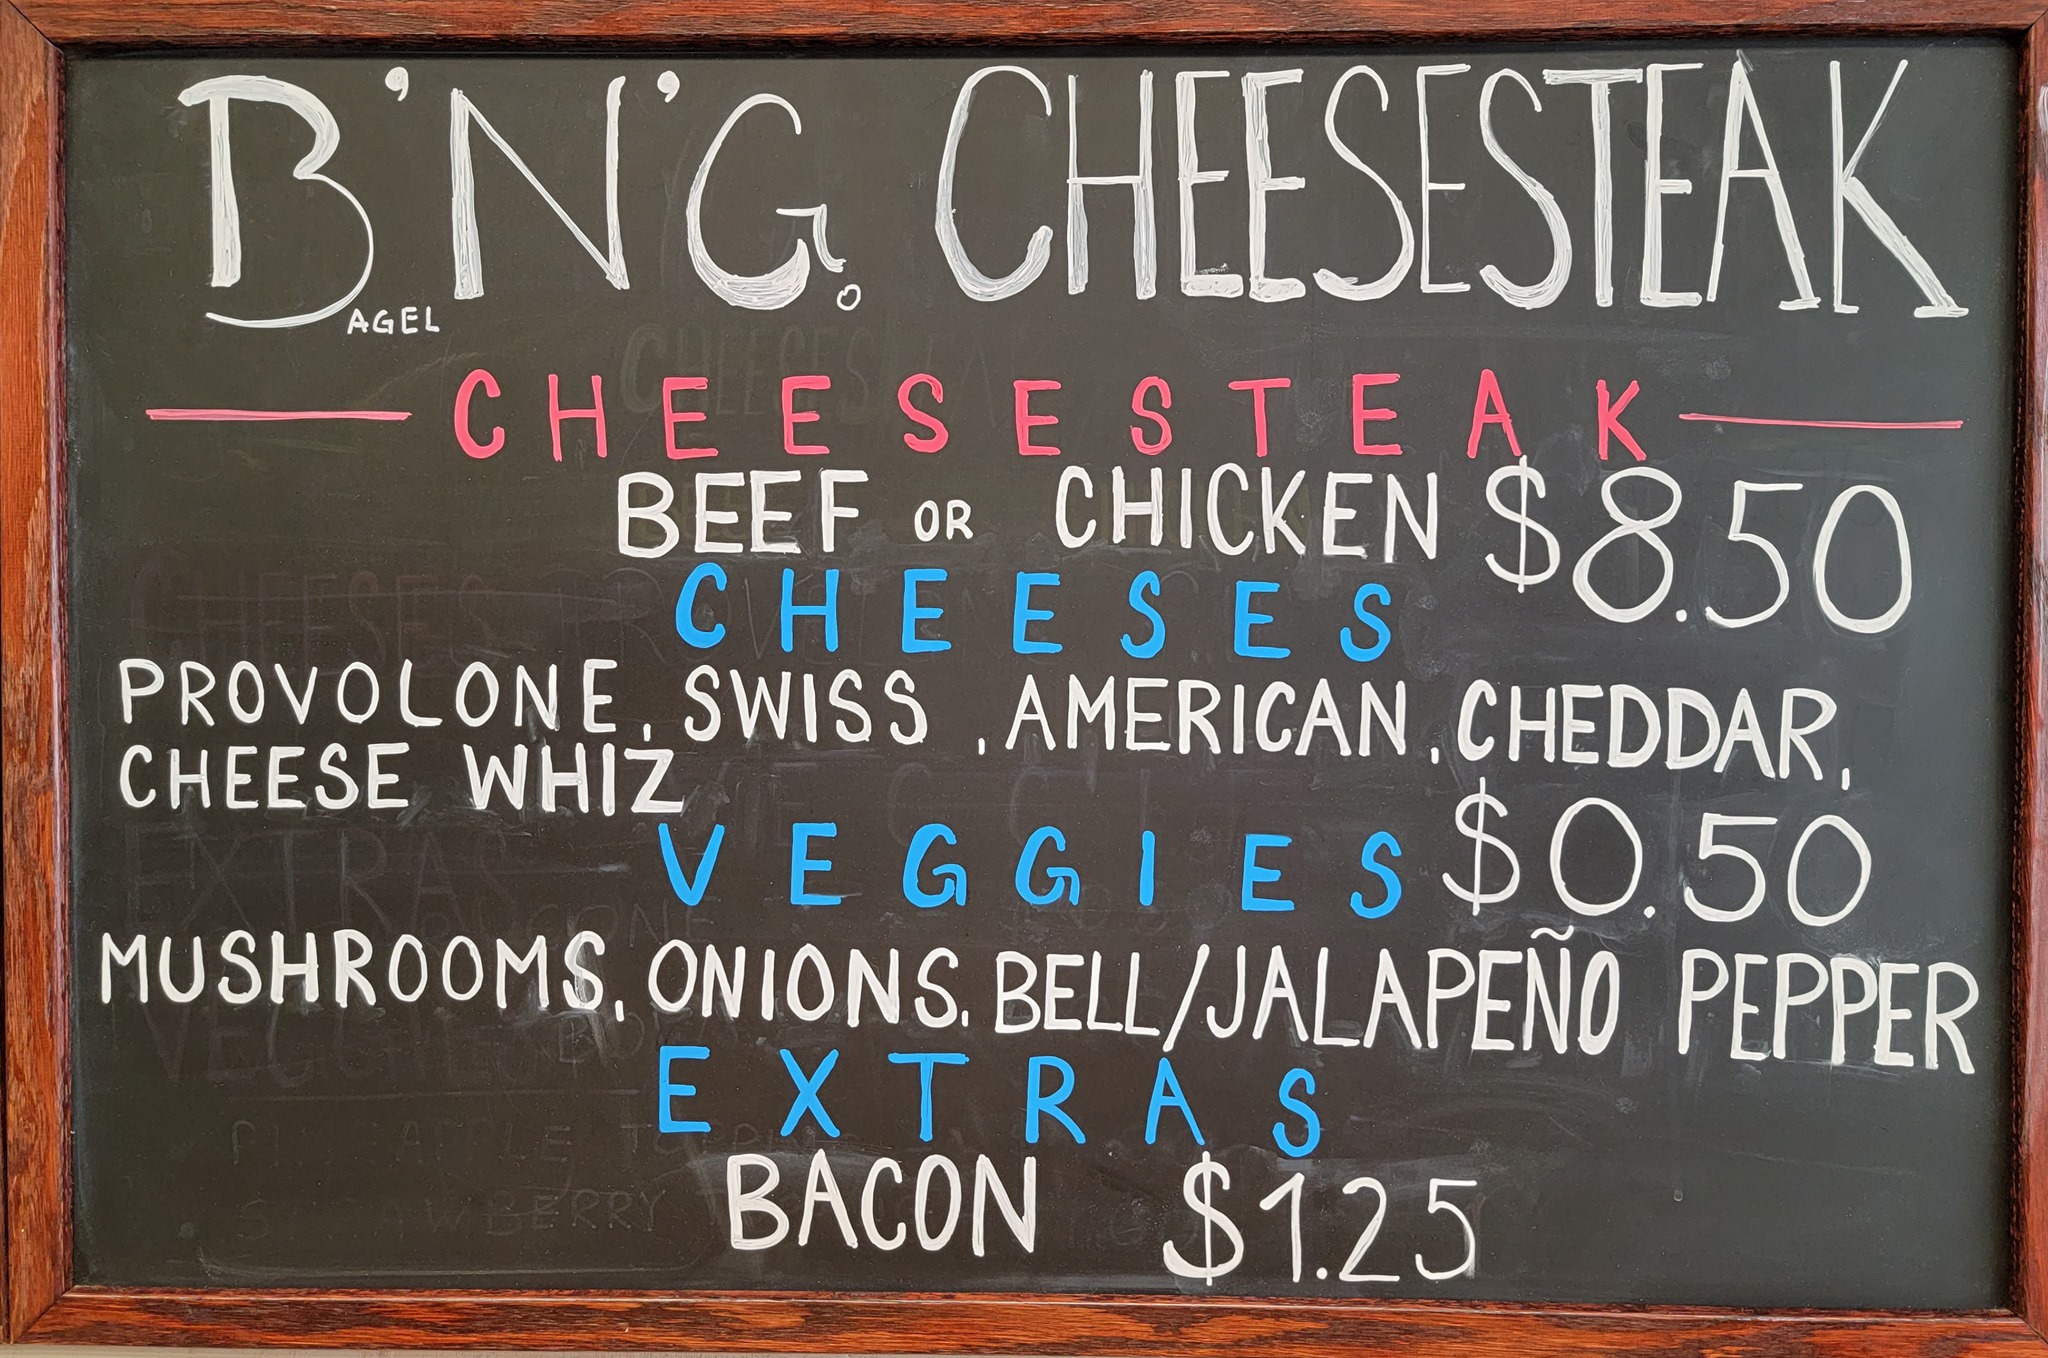 B'N'Go CHEESESTEAK
AGEL
CHEESESTEAK
BEEF OR CHICKEN $8.50
CHEESES
PROVOLONE, SWISS, AMERICAN, CHEDDAR,
CHEESE WHIZ
VEGGIES $0.50
MUSHROOMS, ONIONS, BELL/JALAPEÑO PEPPER
EXTRAS
BACON $1.25